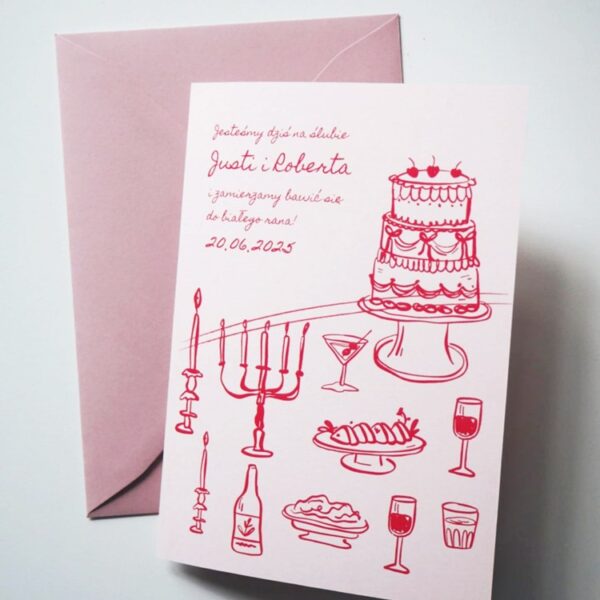 Jesteśmy dziś na ślubie
Justi i Roberta
i zamierzamy bawić się
do białego rana!
20.06.2025